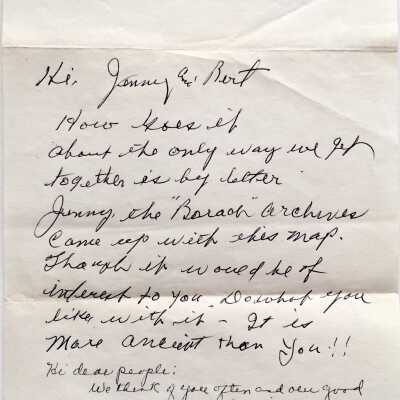 Hi, Jenny and Bert
How goes it
about the only way we get
together is by letter
Jenny, the "Borach" archives
came up with this map.
Though it would be of
interest to you. Do what you
like with it - It is
More ancient than You!!
Hi dear people:
We think of you often and our good